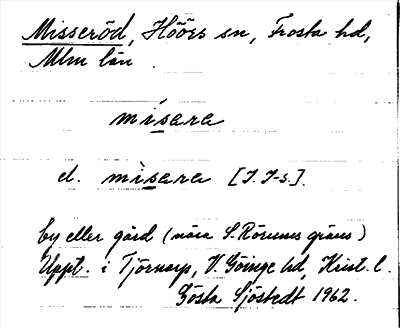 Misseröd, Höörs sn, Frosta hd,
Mlm län
mísara
el. mìsara [J.J-s.].
by eller gård (nära S. Rörums gräns)
Uppt. i Tjörnarp, V. Göinge hd, Krist. l.
Gösta Sjöstedt 1962.